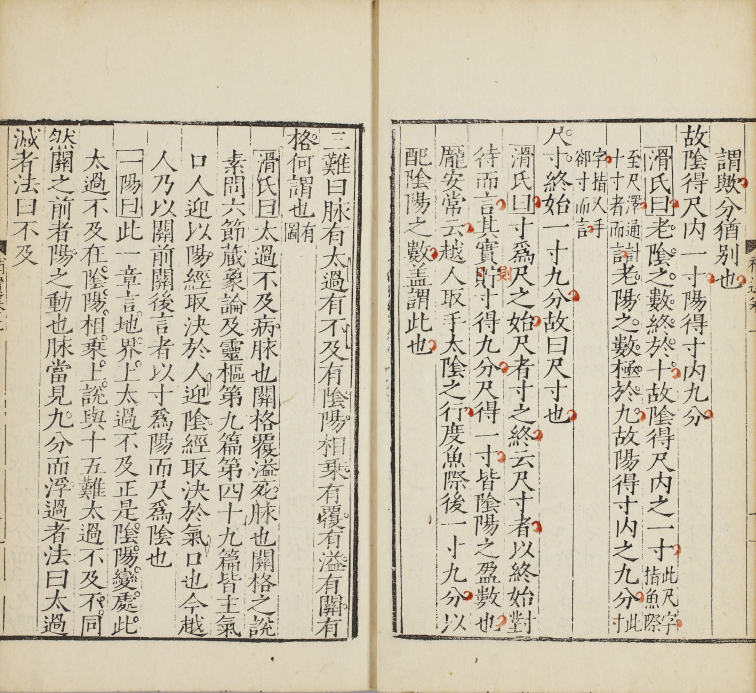 謂歟分猶别也
故陰得尺内一寸陽得寸内九分
滑氏曰老陰之數終於十故陰得尺内之一寸此尺字指魚際
至尺澤通計十寸者而言老陽之數極於九故陽得寸内之九分此寸
字指人手卻寸而言
尺寸終始一寸九分故曰尺寸也
滑氏曰寸爲尺之始尺者寸之終云尺寸者以終始對
待而言其實貯寸得九分尺得一寸皆陰陽之盈數也
則
龐安常云越人取手太陰之行度魚際後一寸九分以
配陰陽之數蓋謂此也
三難曰脉有太過有不及有陰陽相乘有覆有溢有關有
格何謂也有圖
滑氏曰太過不及病脉也關格覆溢死脉也關格之說
素問六節蔵象論及靈樞第九篇第四十九篇皆主氣
口人迎以陽經取決於人迎陰經取決於氣口也今越
人乃以關前關後言者以寸爲陽而尺爲陰也
一陽曰此一章言地界上太過不及正是陰陽變處此
太過不及在陰陽相乘上說與十五難太過不及不同
然關之前者陽之動也脉當見九分而浮過者法曰太過
減者法曰不及